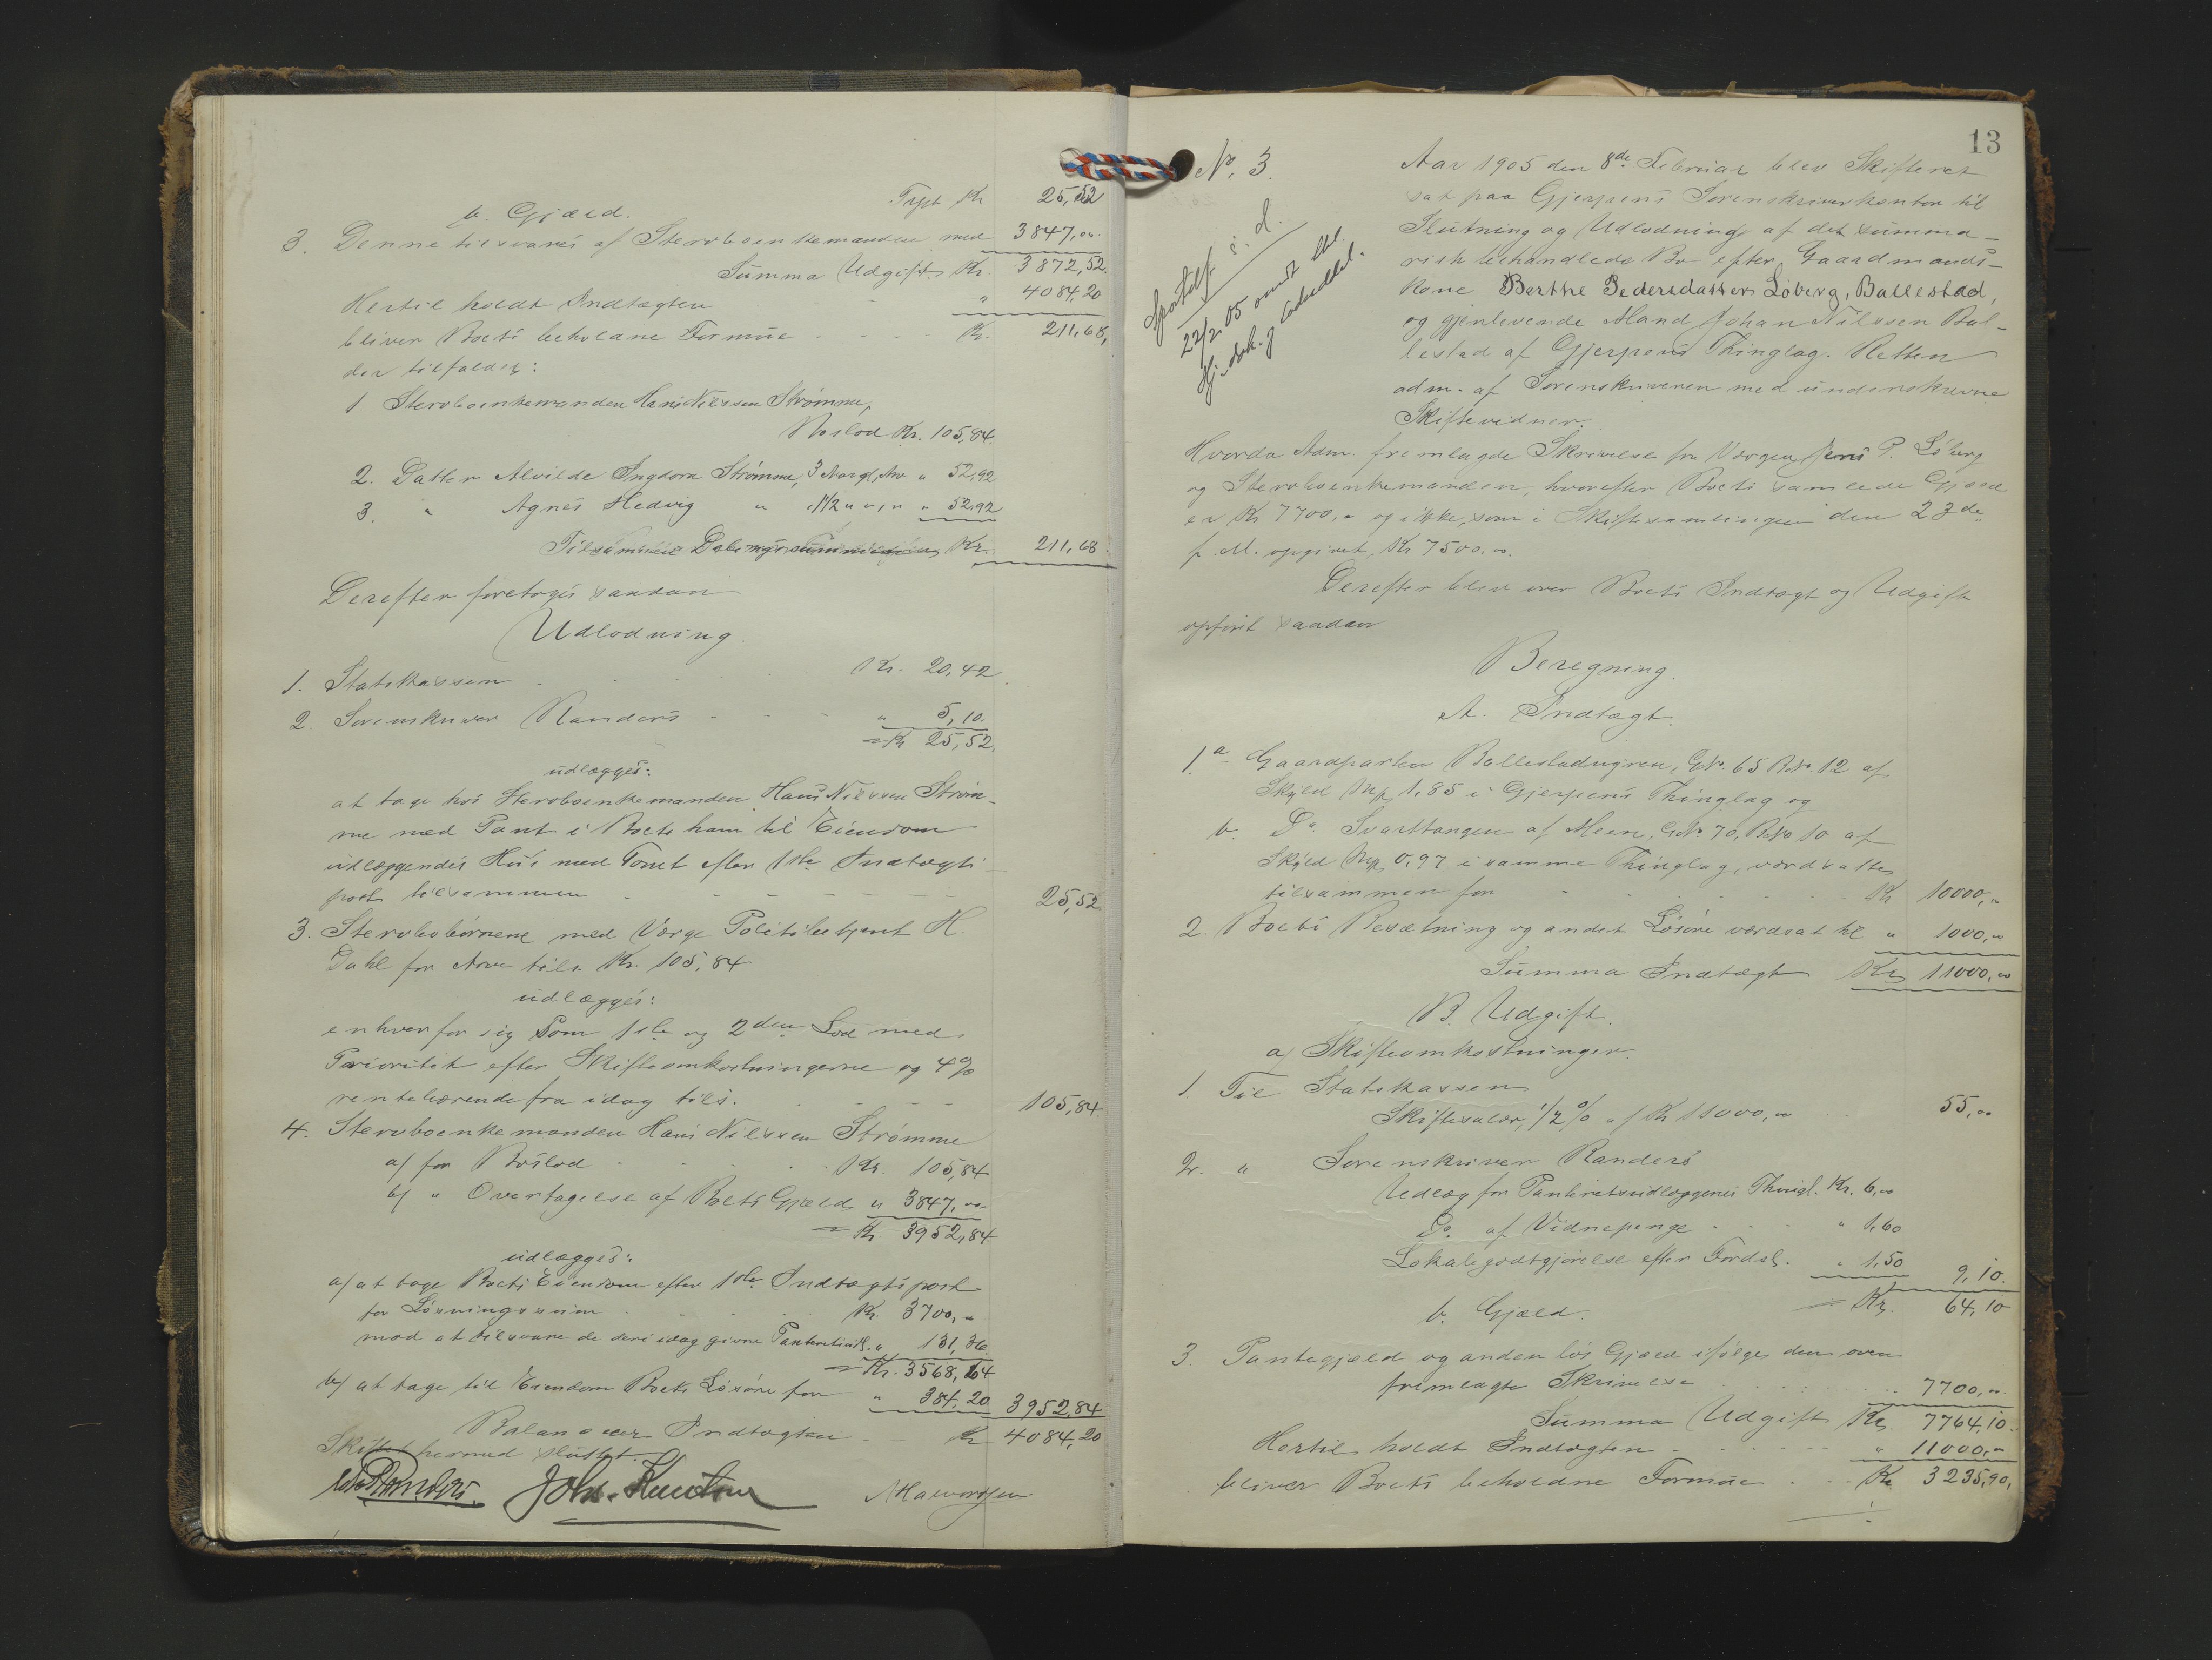 Trspt Kr 25,52
b. Gjæld.
3. Denne tilsvares af Stervboenkemanden med 3847,00
Summa Udgift Kr 3872,52.
Hertil holdt Indtægten " 4084,20
bliver Boets beholdne Formue Kr. 211,68,
der tilfalder:
1. Stervboenkemanden Hans Nilssen Strømme,
Boslod Kr. 105,84.
2. Datter Alvilde Ingdora Strømme, 3 Aar gl, Arv " 52,92
3. " Agnes Hedvig " 1 1/2 " " , " " 52,92
Delingssummen Kr. 211,68
Derefter foretoges saadan
Udlodning.
1. Statskassen Kr. 20,42.
2. Sorenskriver Randers " 5,10.
= Kr 25,52.
udlægges:
at tage hos Stervboenkemanden Hans Nilssen Strøm-
me med Pant i Boets ham til Eiendom
udlæggendes Hus med Tomt efter 1ste Indtægts-
post tilsammen 25,52
3. Stervbobørnene med Værge Politibetjent H.
Dahl for Arv tils. Kr. 105,84
udlægges:
enhver for sig som 1ste og 2den Lod med
Prioritet efter Skifteomkostningerne og 4%
rentebærende fra idag tils. 105,84
4. Stervboenkemanden Hans Nilssen Strømme
a) for Boslod Kr. 105,84
b) " Overtagelse af Boets Gjæld " 3847,00
= Kr. 3952,84
udlægges:
a) at tage Boets Eiendom efter 1ste Indtægtspost
for Løsningssum Kr. 3700,00
mod at tilsvare de deri idag givne Panteretsudl. " 131,36
= Kr. 3568,64
b) at tage til Eiendom Boets Løsøre for " 384,20 3952,84
Balancerer Indtægten Kr 4084,20
Skiftet hermed sluttet.
Randers. Johs. Knutsen N Halvorsen
13
No. 3.
Sportelf. s. d.
22/2 05
Aar 1905 den 8de Februar blev Skifteret
sat paa Gjerpens Sorenskriverkontor til
Slutning og Udlodning af det summa-
risk behandlede Bo efter Gaardmands-
kone Berthe Pedersdatter Løberg, Ballestad,
og gjenlevende Mand Johan Nilssen Bal-
lestad af Gjerpens Thinglag. Retten
adm. af Sorenskriveren med underskrevne
Skiftevidner.
Hvorda Adm. fremlagde Skrivelse fra Værgen Jens P. Løberg
og Stervboenkemanden, hvorefter Boets samlede Gjæld
er Kr 7700,00 og ikke, som i Skiftesamlingen den 23de
f. M. opgivet, Kr 7500,00.
Derefter blev over Boets Indtægt og Udgift
opført saadan
Beregning.
A. Indtægt.
1.a Gaardparten Ballestadmyren, GNo. 65 BNo. 12 af
Skyld Mk 1,85 i Gjerpens Thinglag og
b. Do. Svarttangen af Meen, GNo. 70, BNo 10 af
Skyld Mk 0,97 i samme Thinglag, værdsattes
tilsammen for Kr 10000,00
2. Boets Besætning og andet Løsøre værdsat til " 1000,00
Summa Indtægt Kr 11000,00
B. Udgift.
a) Skifteomkostninger.
1. Til Statskassen
Skiftesalær, 1/2% af Kr 11000,00 55,00
2. " Sorenskriver Randers
Udlæg for Panteretsudlæggenes Thingl. Kr. 6,00
Do. af Vidnepenge " 1,60
Lokalegodtgjørelse efter Fordel. " 1,50 9,10.
= Kr. 64,10
b. Gjæld.
3. Pantegjæld og anden løs Gjæld ifølge den oven
fremlagte Skrivelse " 7700,00
Summa Udgift Kr 7764,10.
Hertil holdt Indtægten " 11000,00
bliver Boets beholdne Formue Kr 3235,90,